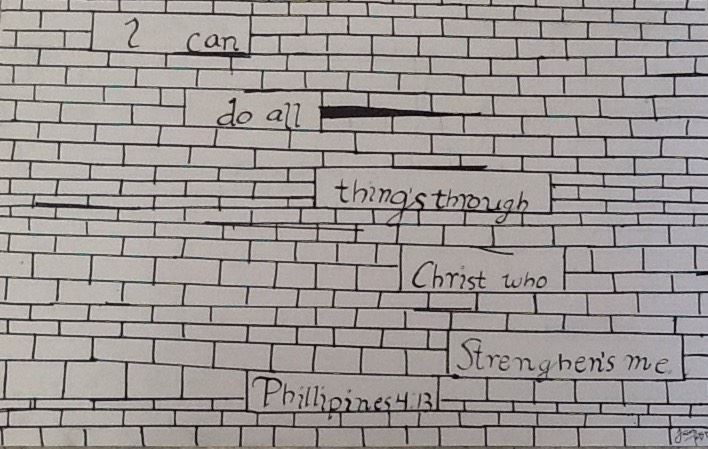 I can
do all
thing's through
Christ who
Strenghen's me.
Phillipines 4:13